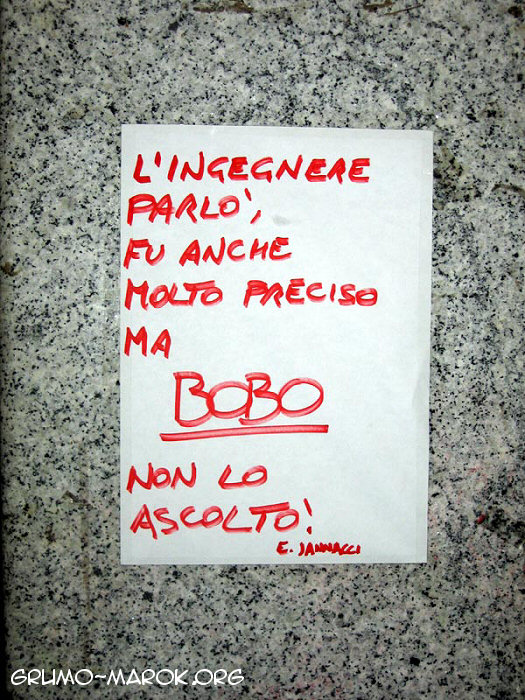 L'INGEGNERE
PARLO',
FU ANCHE
MOLTO PRECISO
MA
BOBO
NON LO
ASCOLTO!
E. JANNACCI
GRUMO-MAROK.ORG